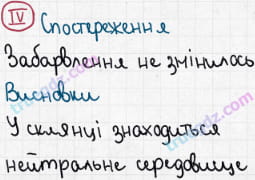 IV
Спостереження
Забарвлення не змінилось
Висновки
У склянці знаходиться
нейтральне середовище